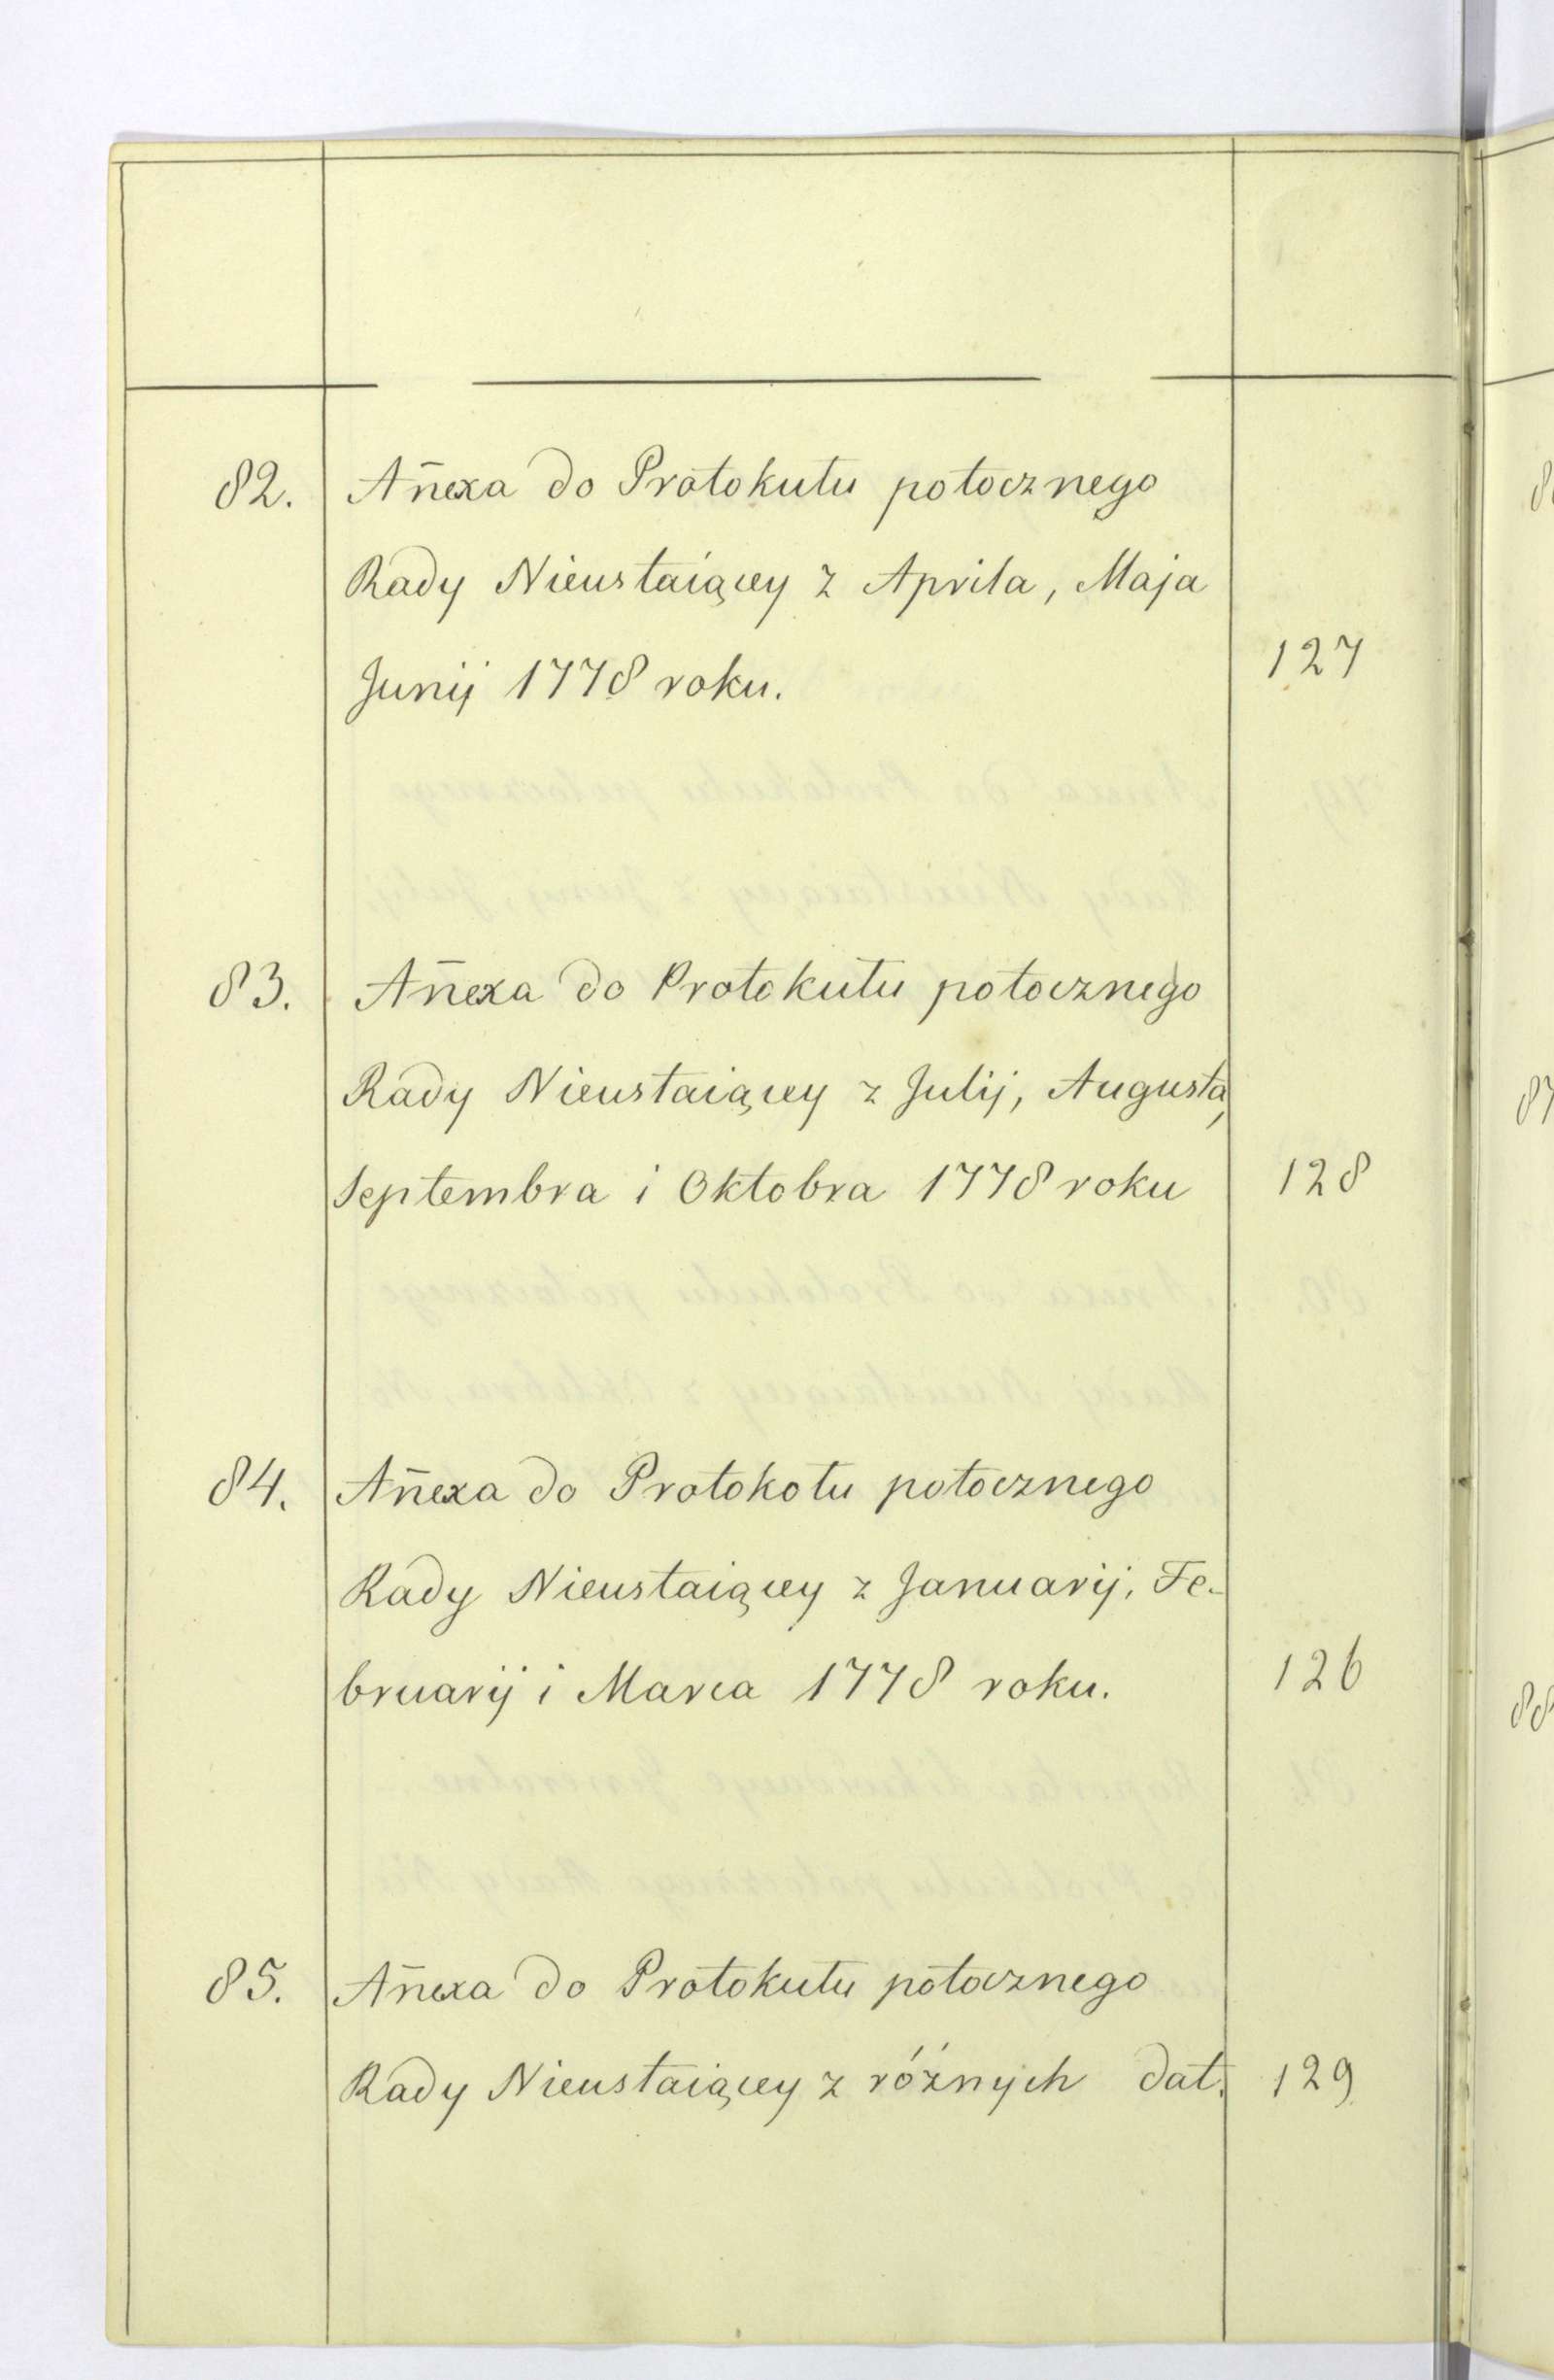 82. Añexa do Protokułu potocznego
Rady Nieustaiącey z Aprila, Maja
Junij 1778 roku. 127
83. Añexa do Protokułu potocznego
Rady Nieustaiącey z Julij, Augusta,
Septembra i Oktobra 1778 roku 128
84. Añexa do Protokołu potocznego
Rady Nieustaiącey z Januarij, Fe-
bruarij i Marca 1778 roku. 126
85. Añexa do Protokułu potocznego
Rady Nieustaiącey z różnych dat. 129
87
88